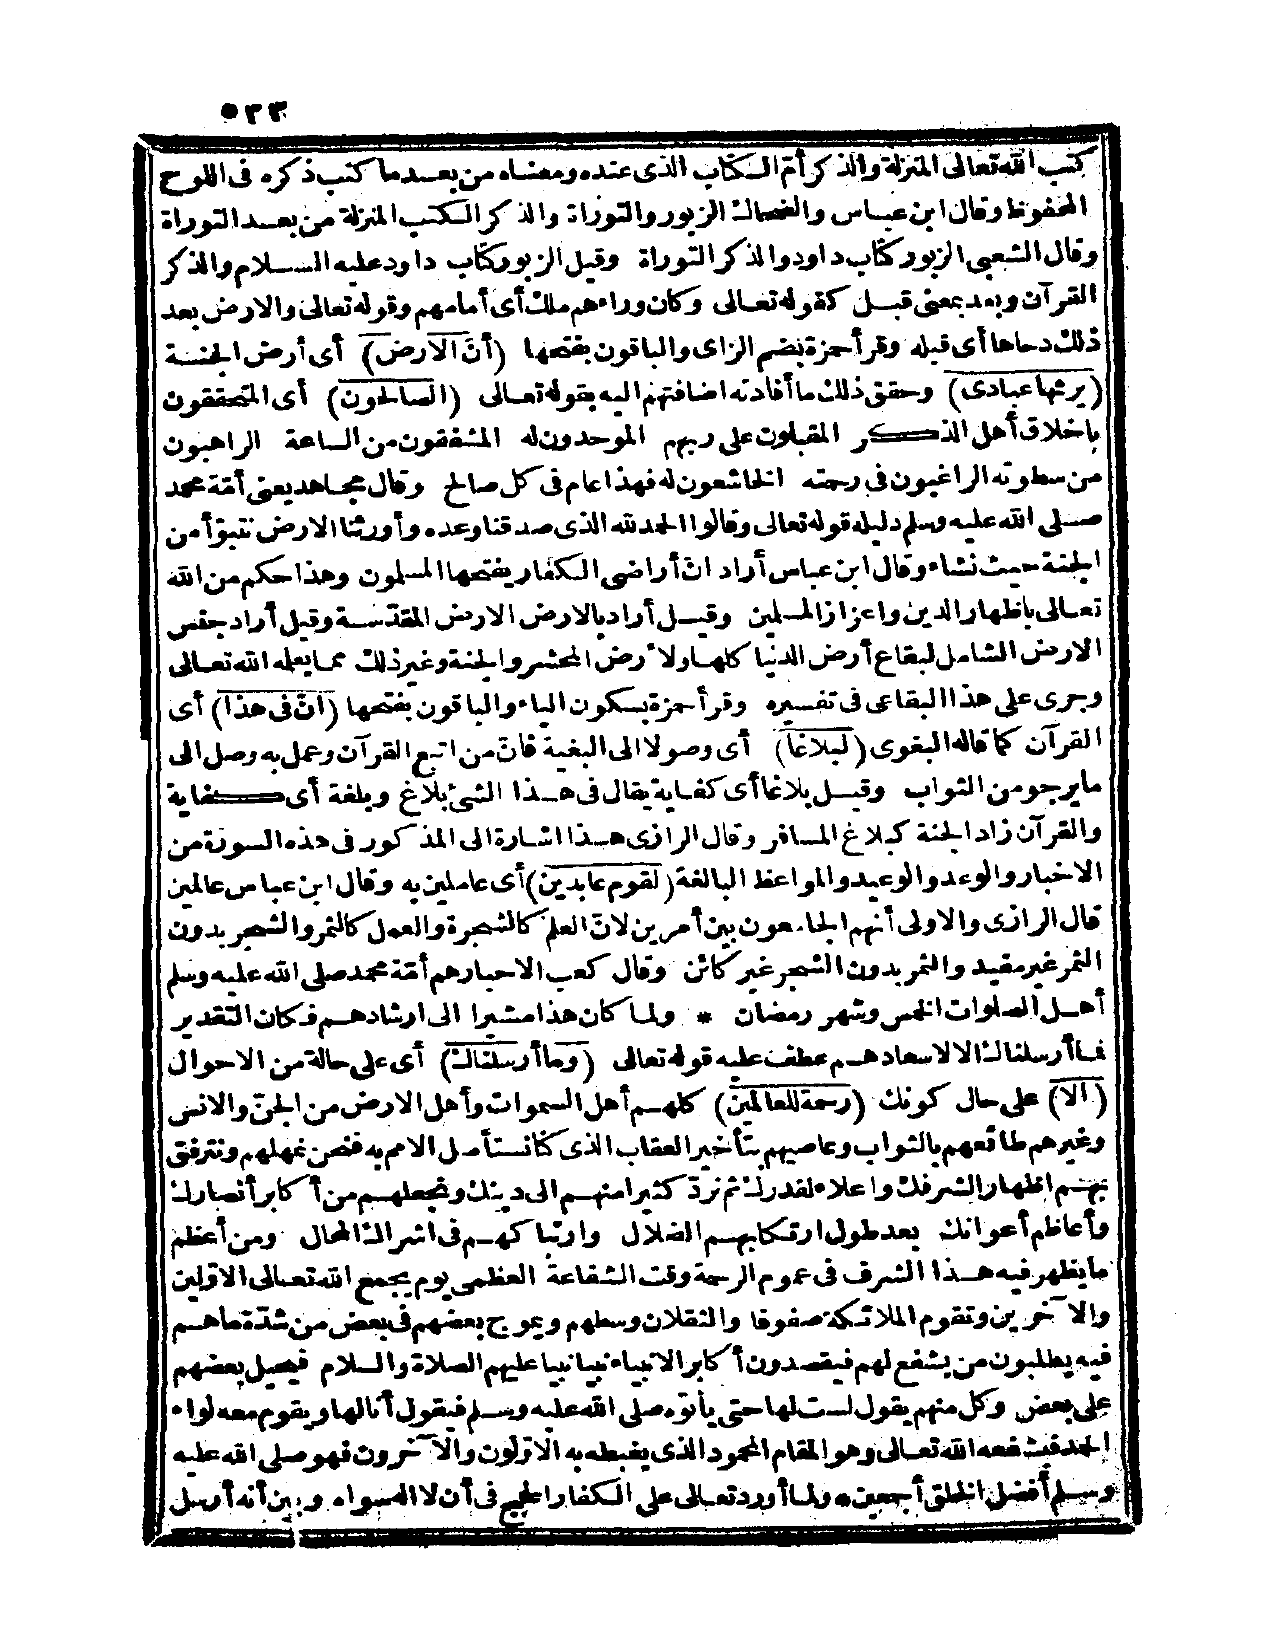 ٥٣٣
كتب الله تعالى المنزلة والذكر أمّ الكتاب الذى عنده ومعناه من بعد ما كتب ذكره فى اللوح
المحفوظ وقال ابن عباس والضحاك الزبور والتوراة والذكر الكتب المنزلة من بعد التوراة
وقال الشعبى الزبور كتاب داود والذكر التوراة وقيل الزبور كتاب داود عليه السلام والذكر
القرآن وبعد بمعنى قبل كقوله تعالى وكان وراءهم ملك أى أمامهم وقوله تعالى والارض بعد
ذلك دحاها أى قبله وقرأ حمزة بضم الزاى والباقون بفتحها (أنّ الارض) أى أرض الجنة
(يرثها عبادى) وحقق ذلك ما أفادته اضافتهم اليه بقوله تعالى (الصالحون) أى المتحققون
باخلاق أهل الذكر المقبلون على ربهم الموحدون له المشفقون من الساعة الراهبون
من سطوته الراغبون فى رحمته الخاشعون له فهذا عام فى كل صالح وقال مجاهد يعنى أمّة محمد
صلى الله عليه وسلم دليله قوله تعالى وقالوا الحمد لله الذى صدقنا وعده وأورثنا الارض نتبوّأ من
الجنة حيث نشاء وقال ابن عباس أراد انّ أراضى الكفار يفتحها المسلمون وهذا حكم من الله
تعالى باظهار الدين واعزاز المسلمين وقيل أراد بالارض الارض المقدّسة وقيل أراد جنس
الارض الشامل لبقاع أرض الدنيا كلها ولأرض المحشر والجنة وغير ذلك مما يعلمه الله تعالى
وجرى على هذا البقاعى فى تفسيره وقرأ حمزة بسكون الياء والباقون بفتحها (انّ فى هذا) أى
القرآن كما قاله البغوى (لبلاغا) أى وصولا الى البغية فانّ من اتبع القرآن وعمل به وصل الى
ما يرجو من الثواب وقيل بلاغا أى كفاية يقال فى هذا الشئ بلاغ وبلغة أى كفاية
والقرآن زاد الجنة كبلاغ المسافر وقال الرازى هذا اشارة الى المذكور فى هذه السورة من
الاخبار والوعد والوعيد والمواعظ البالغة (لقوم عابدين) أى عاملين به وقال ابن عباس عالمين
قال الرازى والاولى أنهم الجامعون بين أمرين لانّ العلم كالشجرة والعمل كالثمر والشجر بدون
الثمر غير مفيد والثمر بدون الشجر غير كائن وقال كعب الاحبار هم أمّة محمد صلى الله عليه وسلم
أهل الصلوات الخمس وشهر رمضان * ولما كان هذا مشيرا الى ارشادهم فكان التقدير
فما أرسلناك الا لاسعادهم عطف عليه قوله تعالى (وما أرسلناك) أى على حالة من الاحوال
(الا) على حال كونك (رحمة للعالمين) كلهم أهل السموات وأهل الارض من الجنّ والانس
وغيرهم طائعهم بالثواب وعاصيهم بتأخير العقاب الذى كنا نستأصل الامم به فنحن نمهلهم ونترفق
بهم اظهارا لشرفك واعلاء لقدرك ثم نردّ كثيرا منهم الى دينك ونجعلهم من أكابر أنصارك
وأعاظم أعوانك بعد طول ارتكابهم الضلال وارتباكهم فى اشراك المحال ومن أعظم
ما يظهر فيه هذا الشرف فى عموم الرحمة وقت الشفاعة العظمى يوم يجمع الله تعالى الاوّلين
والآخرين وتقوم الملائكة صفوفا والثقلان وسطهم ويموج بعضهم فى بعض من شدّة ما هم
فيه يطلبون من يشفع لهم فيقصدون أكابر الانبياء نبيا نبيا عليهم الصلاة والسلام فيحيل بعضهم
على بعض وكل منهم يقول لست لها حتى يأتوه صلى الله عليه وسلم فيقول أنا لها ويقوم معه لواء
الحمد فيشفعه الله تعالى وهو المقام المحمود الذى يغبطه به الاوّلون والآخرون فهو صلى الله عليه
وسلم أفضل الخلق أجمعين * ولما أورد تعالى على الكفار الحجج فى أن لا اله سواه وبين أنه أرسل